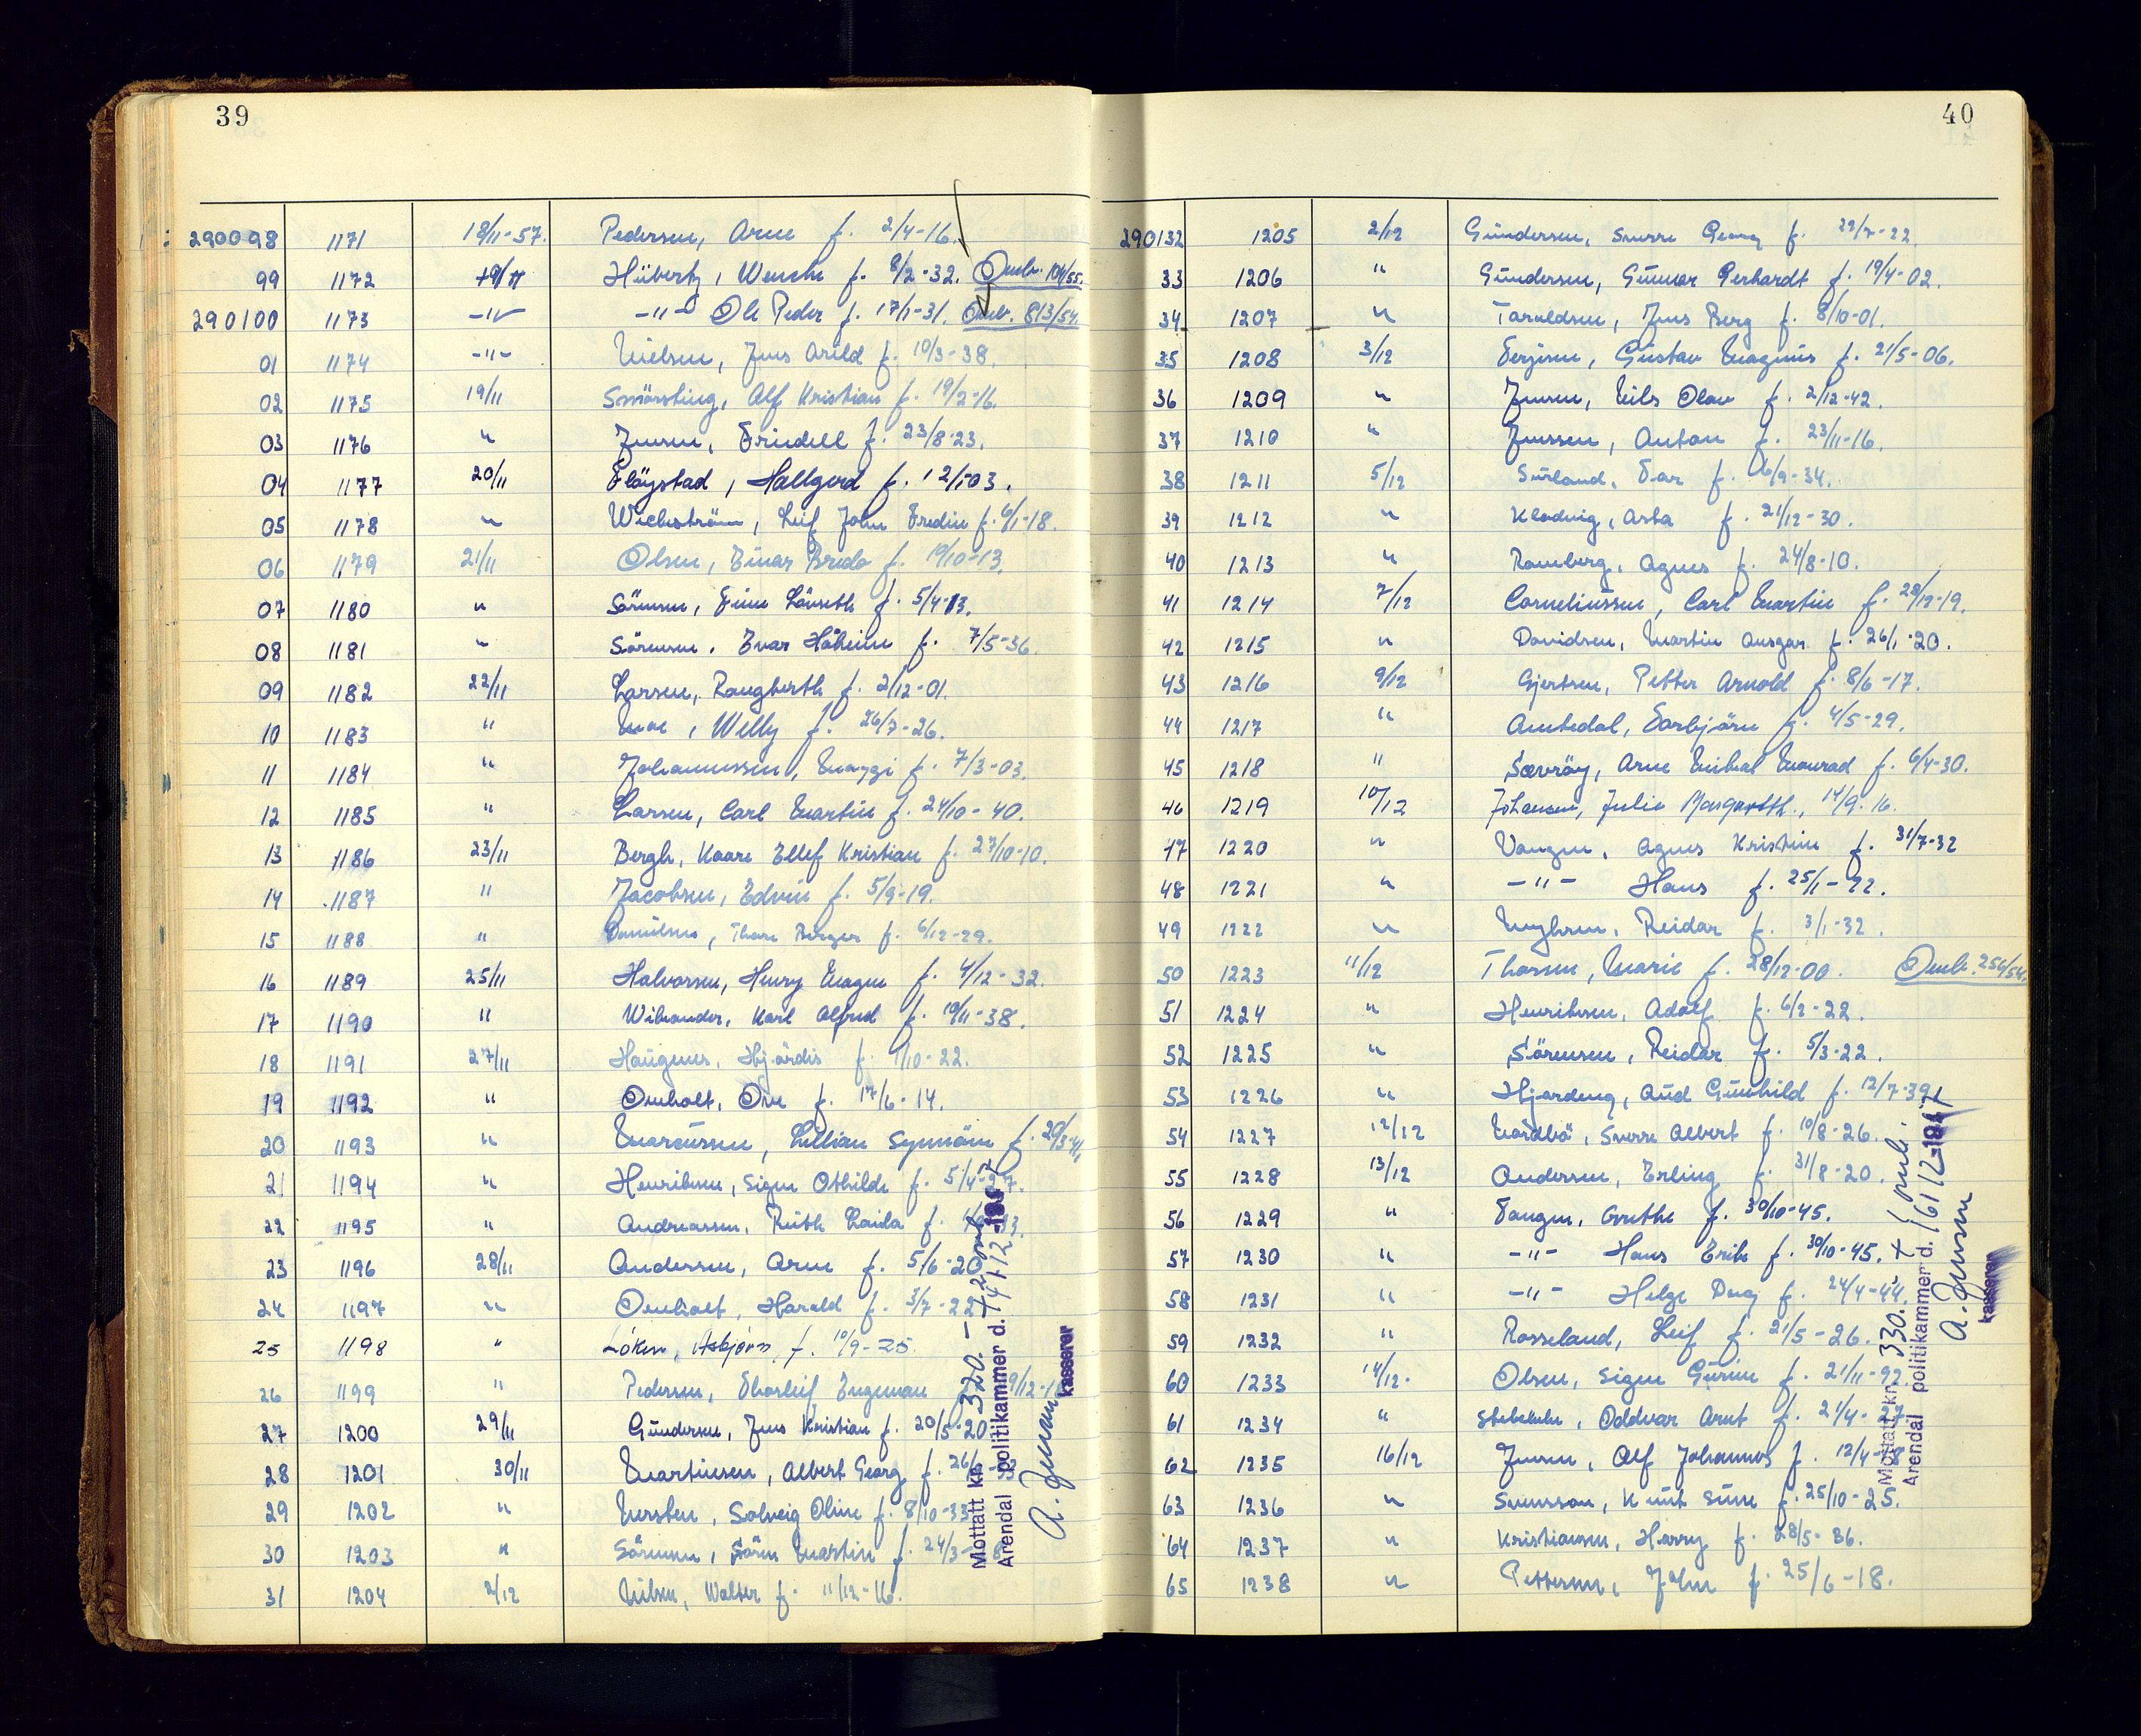 39
290098 1171 18/11-57. Pedersen, Arne f. 2/4-16.
99 1172 19/11 Hübertz, Wenche f. 8/2-32. Omb. 104/55.
290100 1173 -"- -"- Ole Peder f. 17/1-31. Omb. 813/54.
01 1174 -"- Nielsen, Jens Arild f. 10/3-38.
02 1175 19/11 Smörsting, Alf Kristian f. 19/2-16.
03 1176 " Jensen, Friedell f. 23/8-23.
04 1177 20/11 Flöystad, Hallgerd f. 12/1-03.
05 1178 " Wickström, Leif John Fredin f. 6/1-18.
06 1179 21/11 Olsen, Einar Bredo f. 19/10-13.
07 1180 " Sörensen, Finn Lövseth f. 5/4-13.
08 1181 " Sörensen, Ivar Håheim f. 7/5-36.
09 1182 22/11 Larsen, Rangberth f. 2/12-01.
10 1183 " Moe, Willy f. 26/7-26.
11 1184 " Johannessen, Maggi f. 7/3-03.
12 1185 " Larsen, Carl Martin f. 24/10-40.
13 1186 23/11 Bergh, Kaare Ellef Kristian f. 27/10-10.
14 1187 " Jacobsen, Edvin f. 5/9-19.
15 1188 " Thore Birger f. 6/12-29.
16 1189 25/11 Halvorsen, Henry Magne f. 4/12-32.
17 1190 " Wikander, Karl Alfred f. 19/11-38.
18 1191 27/11 Haugenes, Hjördis f. 1/10-22.
19 1192 " Omholt, Ove f. 17/6-14.
20 1193 " Marcussen, Lillian Synnöve f. 20/3-41.
21 1194 " Henriksen, Signe Othilde f. 5/4-27.
22 1195 " Andreassen, Ruth Laila f.
23 1196 28/11 Andersen, Arne f. 5/6-20
24 1197 " Omholt, Harald f. 3/7-22
25 1198 " Löken, Asbjörn, f. 10/9-25.
26 1199 " Pedersen, Thorleif Ingeman
27 1200 29/11 Gundersen, Jens Kristian f. 20/5-20
28 1201 30/11 Martinsen, Albert Georg f. 26/
29 1202 " Nersten, Solveig Oline f. 8/10-33
30 1203 " Sörensen, Sören Martin f. 24/3-
31 1204 2/12 Nilsen, Walter f. 11/12-16.
Mottatt kr. 320.-
Arendal politikammer d. 14/12-19
A. Jensen
kasserer
40
290132 1205 2/12 Gundersen, Sverre Georg f. 22/7-22.
33 1206 " Gundersen, Gunnar Gerhardt f. 19/4-02.
34 1207 " Taraldsen, Jens Berg f. 8/10-01.
35 1208 3/12 Terjesen, Gustav Magnus f. 21/5-06.
36 1209 " Jensen, Nils Olav f. 2/12-42.
37 1210 " Jenssen, Anton f. 23/11-16.
38 1211 5/12 Surland, Tor f. 6/9-34.
39 1212 " Kladvig, Asta f. 21/12-30.
40 1213 " Ramberg, Agnes f. 24/8-10.
41 1214 7/12 Corneliussen, Carl Martin f. 28/12-19.
42 1215 " Davidsen, Martin Ansgar f. 26/1-20.
43 1216 9/12 Gjertsen, Petter Arnold f. 8/6-17.
44 1217 " Amtedal, Torbjörn f. 4/5-29.
45 1218 " Sævröy, Arne Mikal Monrad f. 6/4-30.
46 1219 10/12 Johansen, Julie Margreth., 14/9-16.
47 1220 " Vangen, Agnes Kristine f. 31/7-32
48 1221 " -"- Hans f. 25/1-22.
49 1222 " Myhren, Reidar f. 3/1-32.
50 1223 11/12 Thorsen, Marie f. 28/12-00. Omb. 256/54.
51 1224 " Henriksen, Adolf f. 6/2-22.
52 1225 " Sörensen, Reidar f. 5/3-22.
53 1226 " Hjardeng, Aud Gunhild f. 12/7-39
54 1227 12/12 Nordbö, Sverre Albert f. 10/8-26.
55 1228 13/12 Andersen, Erling f. 31/8-20.
56 1229 " Tangen, Grethe f. 30/10-45.
57 1230 " -"- Hans Erik f. 30/10-45.
58 1231 " -"- Helge Dag f. 24/4-44.
59 1232 " Rosseland, Leif f. 21/5-26.
60 1233 14/12. Olsen, Signe Gurine f. 21/11-92.
61 1234 " Oddvar Arnt f. 21/4-27
62 1235 16/12 Jensen, Alf Johannes f. 12/4-18
63 1236 " Svensson, Knut Sune f. 25/10-25.
64 1237 " Kristiansen, Harry f. 28/5-36.
65 1238 " Pettersen, John f. 25/6-18.
Mottatt kr. 330.
Arendal politikammer d. 16/12-19
A. Jensen
kasserer